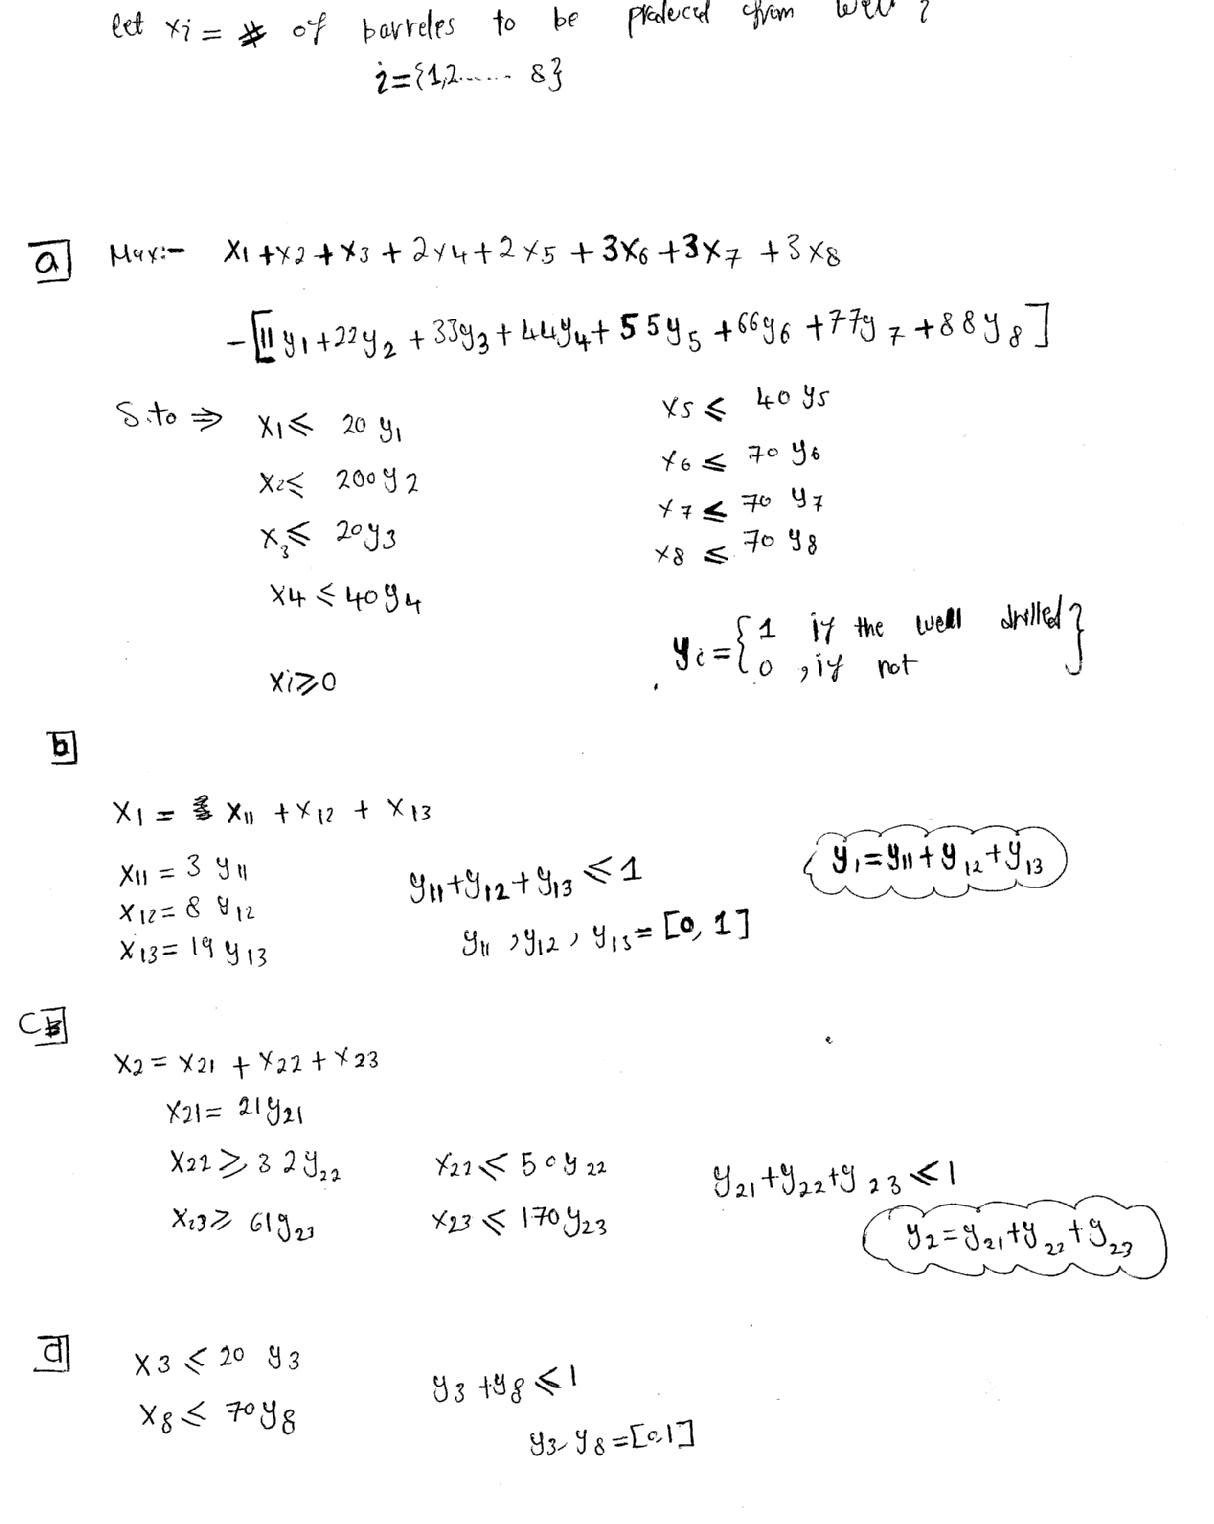 let xi = # of barreles to be produced from well i
i={1,2...... 8}
a Max:- x1 + x2 + x3 + 2x4 + 2x5 + 3x6 + 3x7 + 3x8
-[11y1 + 22y2 + 33y3 + 44y4 + 55y5 + 66y6 + 77y7 + 88y8]
S.to ⇒ x1 ≤ 20 y1
x2 ≤ 200 y2
x3 ≤ 20y3
x4 ≤ 40y4
xi ≥ 0
x5 ≤ 40 y5
x6 ≤ 70 y6
x7 ≤ 70 y7
x8 ≤ 70 y8
yi = { 1 if the well drilled }
0 , if not
b
x1 = x11 + x12 + x13
x11 = 3 y11
x12 = 8 y12
x13 = 19 y13
y11 + y12 + y13 ≤ 1
y11 , y12 , y13 = [0, 1]
y1 = y11 + y12 + y13
C
x2 = x21 + x22 + x23
x21 = 21y21
x22 ≥ 32y22 x22 ≤ 50y22
x23 ≥ 61y23 x23 ≤ 170y23
y21 + y22 + y23 ≤ 1
y2 = y21 + y22 + y23
d
x3 ≤ 20 y3
x8 ≤ 70y8
y3 + y8 ≤ 1
y3, y8 = [0,1]